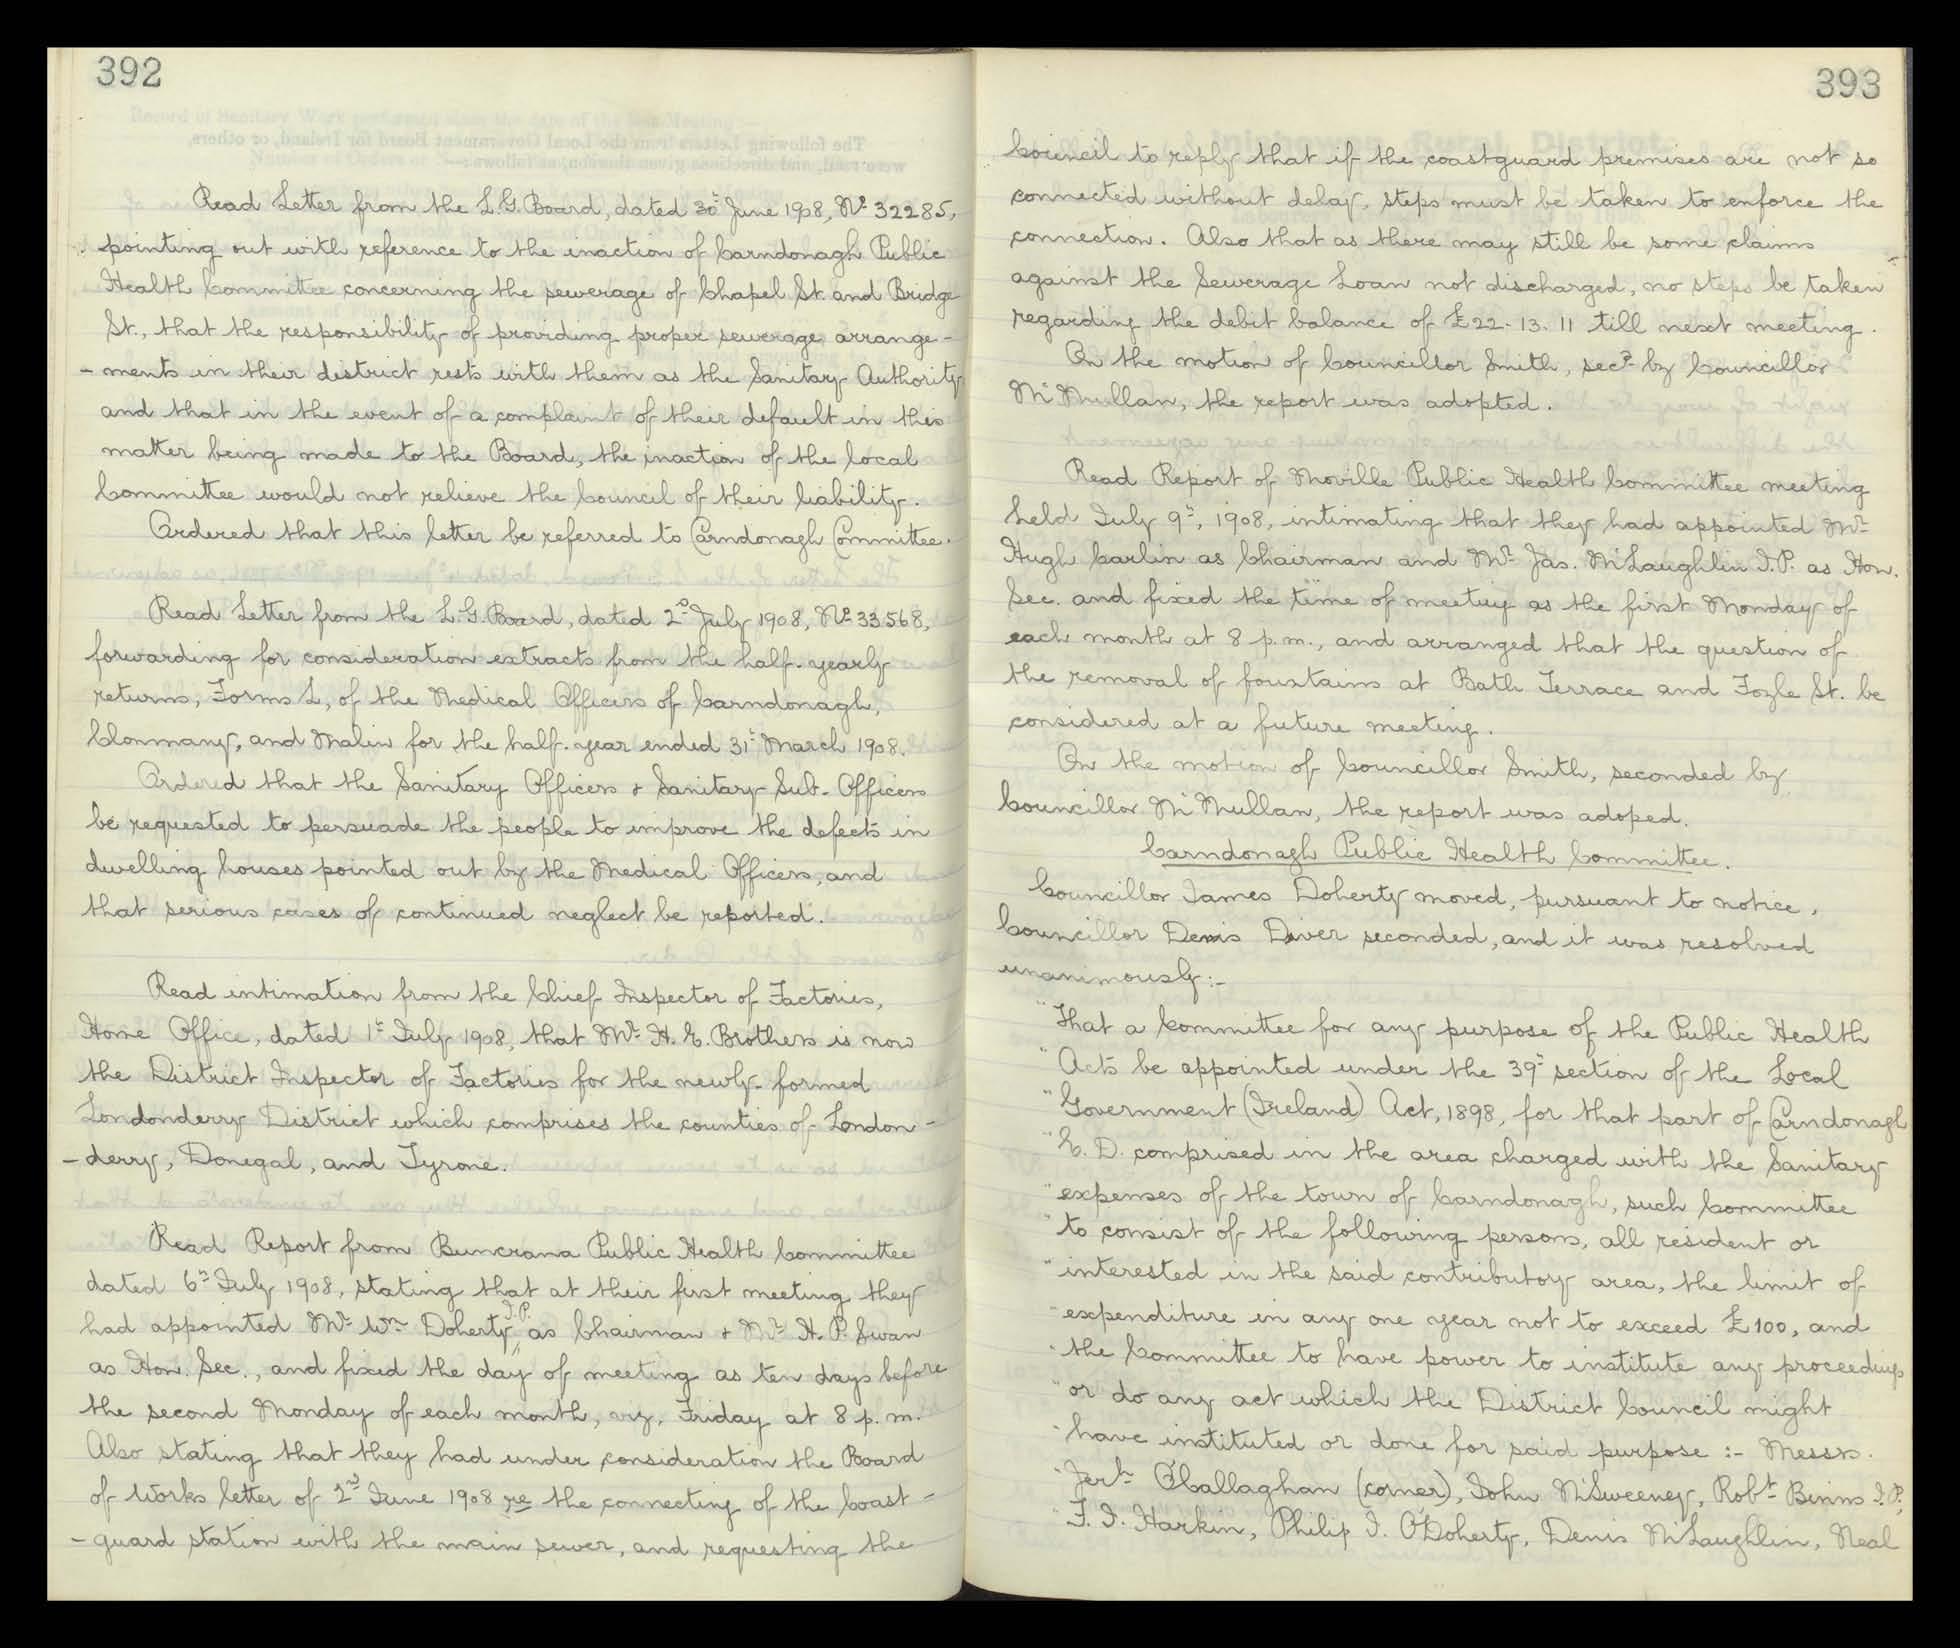 392
Read Letter from the L.G. Board, dated 30th June 1908, No 32285,
pointing out with reference to the inaction of Carndonagh Public
Health Committee concerning the sewerage of Chapel St. and Bridge
St., that the responsibility of providing proper sewerage arrange-
-ments in their district rests with them as the Sanitary Authority
and that in the event of a complaint of their default in this
matter being made to the Board, the inaction of the local
Committee would not relieve the Council of their liability.
Ordered that this letter be referred to Carndonagh Committee.
Read Letter from the L.G. Board, dated 2nd July 1908, No 33568,
forwarding for consideration extracts from the half-yearly
returns, Forms L, of the Medical Officers of Carndonagh,
Clonmany, and Malin for the half-year ended 31st March 1908.
Ordered that the Sanitary Officers & Sanitary Sub-Officers
be requested to persuade the people to improve the defects in
dwelling houses pointed out by the Medical Officers, and
that serious cases of continued neglect be reported.
Read intimation from the Chief Inspector of Factories,
Home Office, dated 1st July 1908, that Mr. H. E. Brothers is now
the District Inspector of Factories for the newly-formed
Londonderry District which comprises the counties of London-
-derry, Donegal, and Tyrone.
Read Report from Buncrana Public Health Committee
dated 6th July 1908, stating that at their first meeting they
had appointed Mr. Wm Doherty, J.P. as Chairman & Mr. H. P. Swan
as Hon. Sec., and fixed the day of meeting as ten days before
the second Monday of each month, viz, Friday at 8 p.m.
Also stating that they had under consideration the Board
of Works letter of 2nd June 1908 re the connecting of the Coast-
-guard station with the main sewer, and requesting the
393
Council to reply that if the coastguard premises are not so
connected without delay, steps must be taken to enforce the
connection. Also that as there may still be some claims
against the Sewerage Loan not discharged, no steps be taken
regarding the debit balance of £22-13.11 till next meeting.
On the motion of Councillor Smith, secd by Councillor
McMullan, the report was adopted.
Read Report of Moville Public Health Committee meeting
held July 9th, 1908, intimating that they had appointed Mr.
Hugh Carlin as Chairman and Mr. Jas. McLaughlin J.P. as Hon.
Sec. and fixed the time of meeting as the first Monday of
each month at 8 p.m., and arranged that the question of
the removal of fountains at Bath Terrace and Foyle St. be
considered at a future meeting.
On the motion of Councillor Smith, seconded by
Councillor McMullan, the report was adoped.
Carndonagh Public Health Committee.
Councillor James Doherty moved, pursuant to notice,
Councillor Denis Diver seconded, and it was resolved
unanimously:-
"That a Committee for any purpose of the Public Health
"Acts be appointed under the 39th section of the Local
"Government (Ireland) Act, 1898, for that part of Carndonagh
"E. D. comprised in the area charged with the Sanitary
"expenses of the town of Carndonagh, such Committee
"to consist of the following persons, all resident or
"interested in the said contributory area, the limit of
"expenditure in any one year not to exceed £100, and
"the Committee to have power to institute any proceedings
"or do any act which the District Council might
"have instituted or done for said purpose :- Messrs.
"Jerh O'Callaghan (corner), John McSweeney, Robt Binns J.P.,
"F. J. Harkin, Philip J. O'Doherty, Denis McLaughlin, Neal